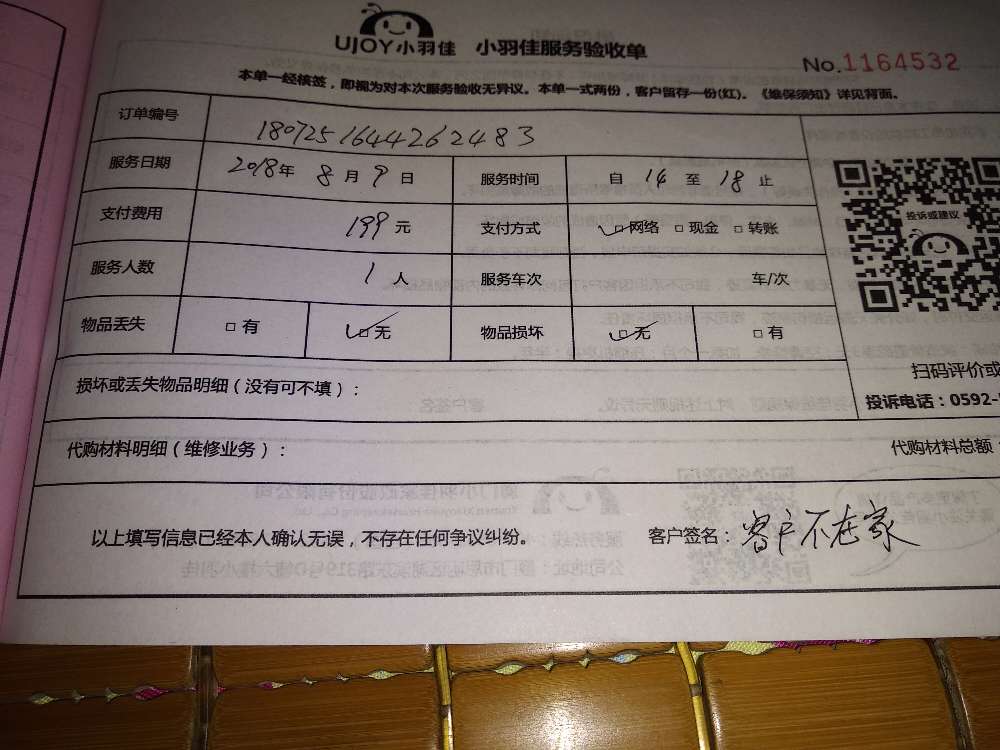 UJOY小羽佳 小羽佳服务验收单
No.1164532
本单一经核签，即视为对本次服务验收无异议。本单一式两份，客户留存一份(红)。《维保须知》详见背面。
订单编号 1807251644262483
服务日期 2018年 8月 9日 服务时间 自 14 至 18 止
支付费用 199 元 支付方式 ☑网络 □现金 □转账
服务人数 1 人 服务车次 车/次
投诉或建议
物品丢失 □有 ☑无 物品损坏 ☑无 □有
损坏或丢失物品明细（没有可不填）：
扫码评价或
投诉电话：0592-
代购材料明细（维修业务）：
代购材料总额：
以上填写信息已经本人确认无误，不存在任何争议纠纷。 客户签名：客户不在家